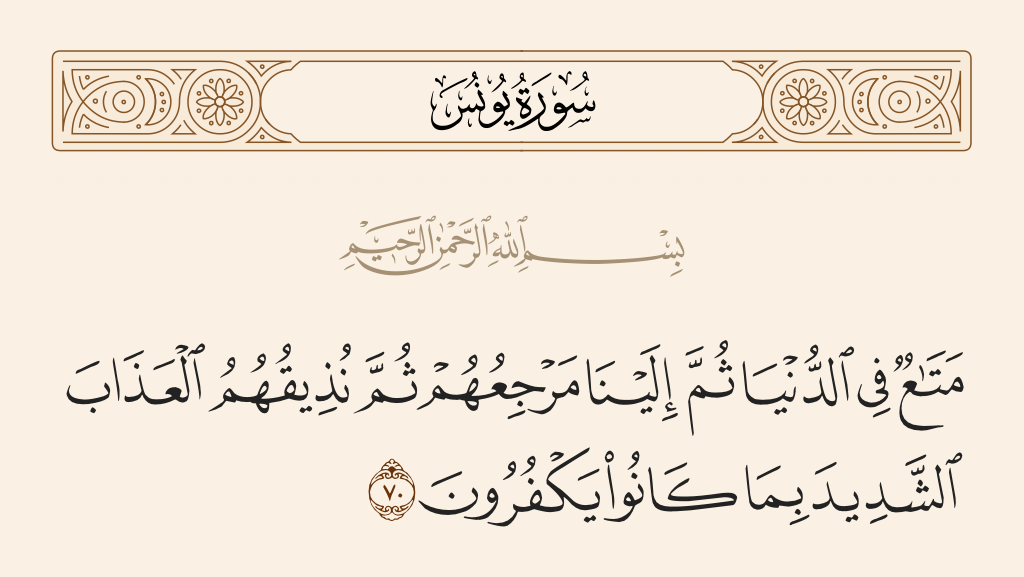 سُورَةُ يُونُسَ
بِسْمِ ٱللَّهِ ٱلرَّحْمَٰنِ ٱلرَّحِيمِ
مَتَـٰعٌ فِى ٱلدُّنْيَا ثُمَّ إِلَيْنَا مَرْجِعُهُمْ ثُمَّ نُذِيقُهُمُ ٱلْعَذَابَ
ٱلشَّدِيدَ بِمَا كَانُوا۟ يَكْفُرُونَ ٧٠